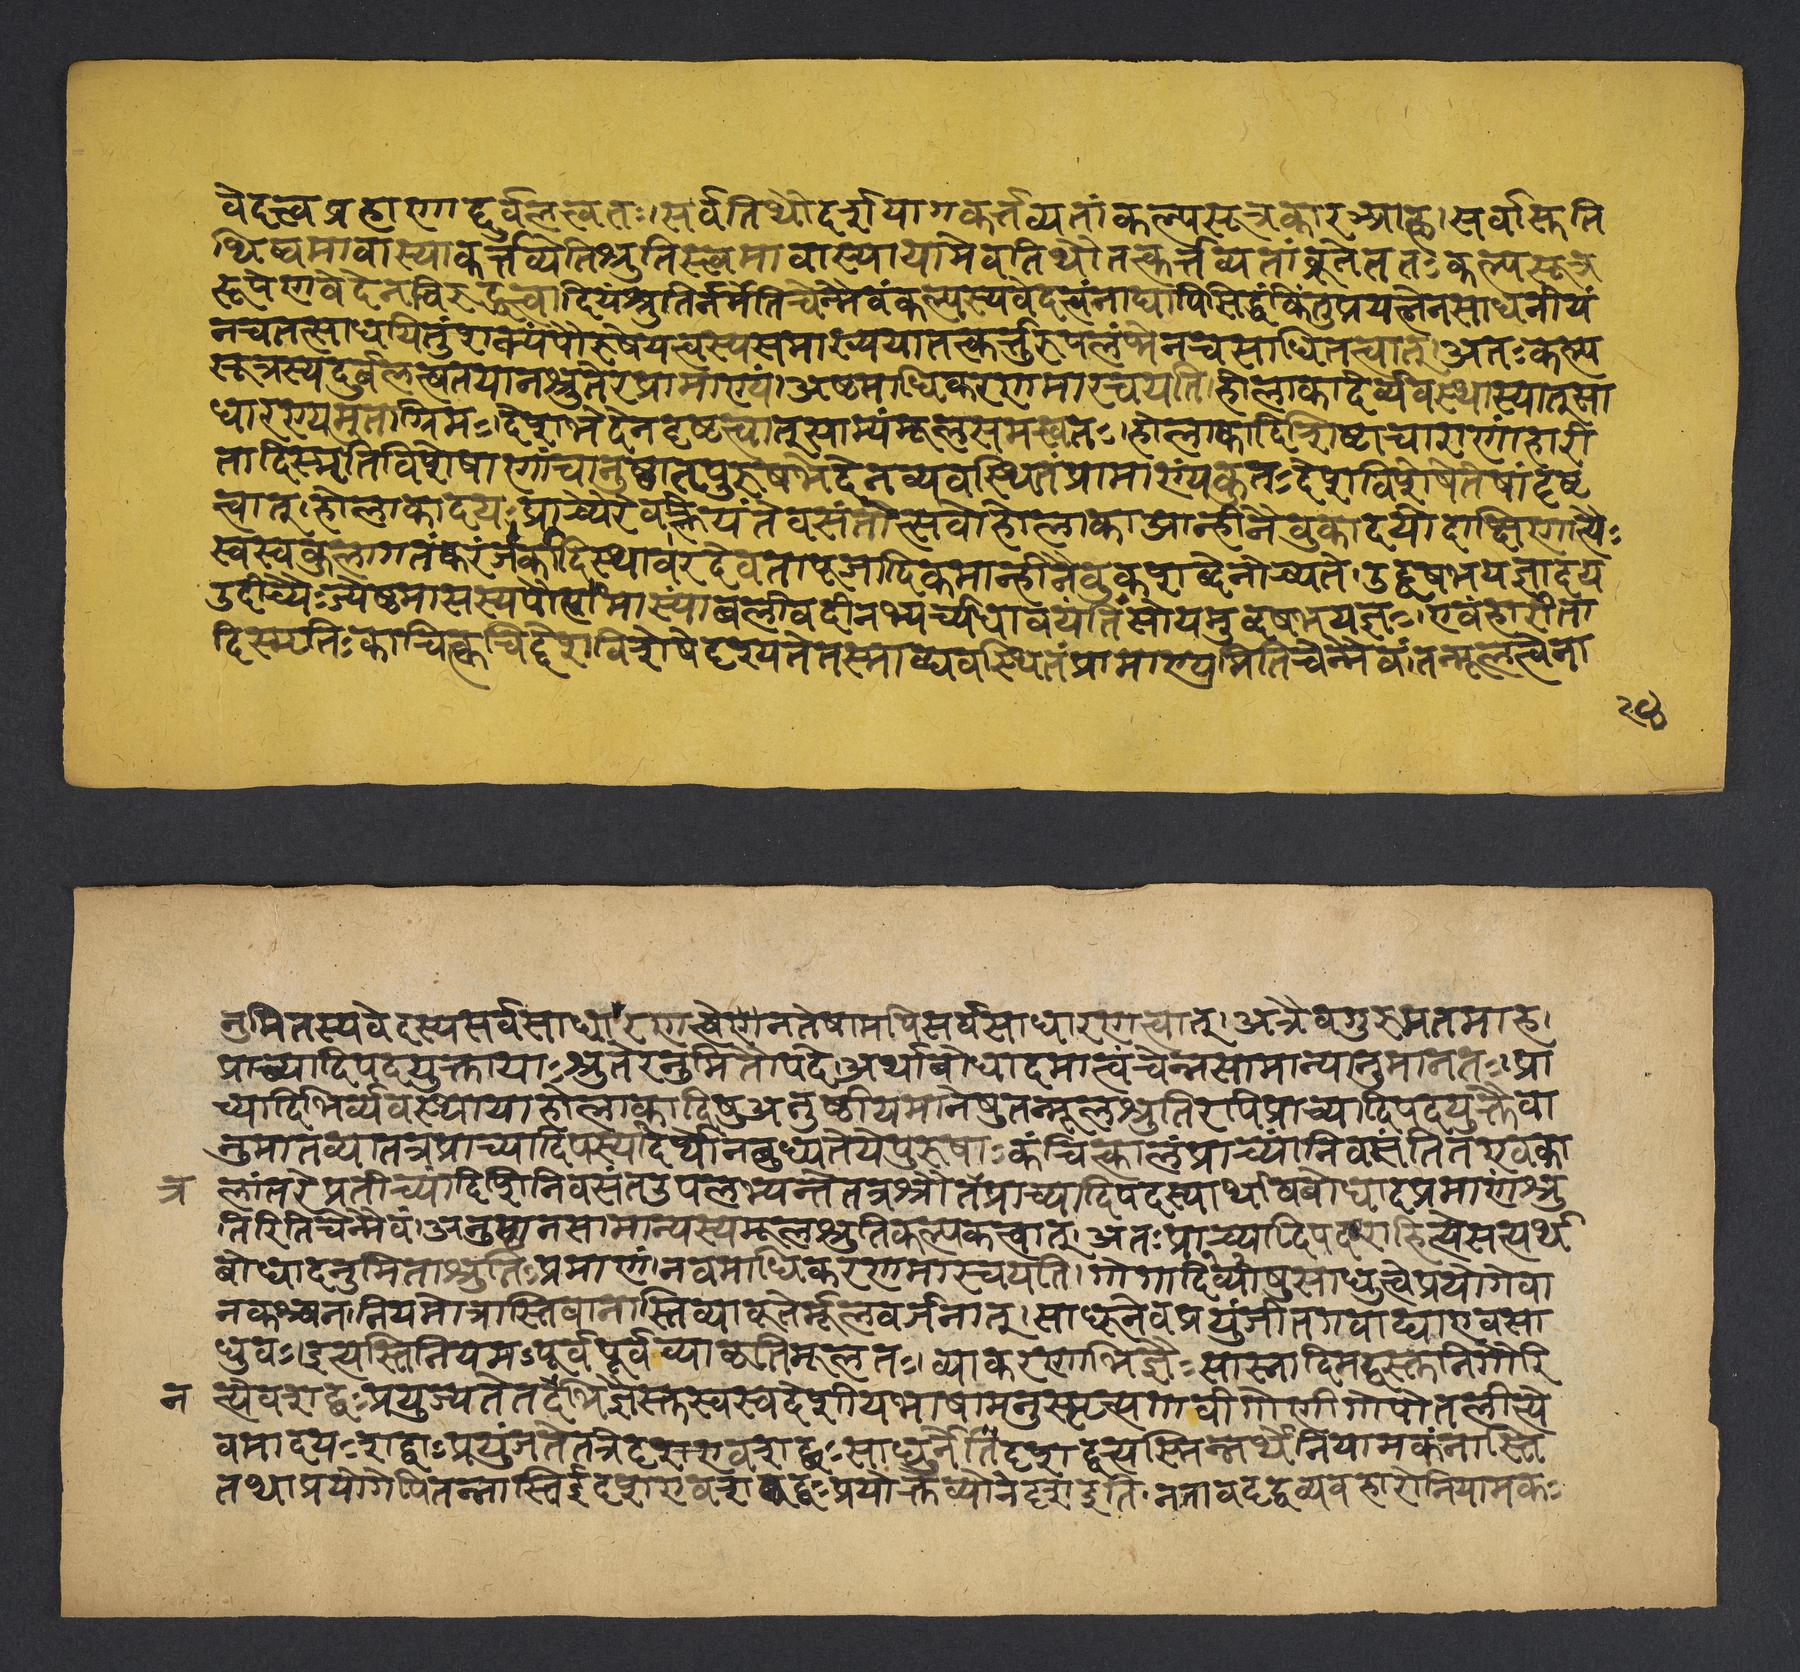 वेदत्त्वप्रहाणाद्दुर्वलत्वतः। सर्वतिथौदर्शयागकर्त्तव्यतांकल्पसूत्रकारआह। सर्वास्तति
थिष्वमावास्याकर्त्तव्येतिश्रुतिस्त्वमावास्यायामेवतिथौतत्कर्त्तव्यतांब्रूतेततःकल्पसूत्र
रूपेणवेदेनविरुद्धत्वादियंश्रुतिर्नर्मेतिचेन्मैवंकल्पस्यवेदत्वंनाद्यापिसिद्धंकिंतुप्रयत्नेनसाधनीयं
नचतत्साधयितुंशक्यंपौरुषेयत्वस्यसमाख्ययातत्कर्त्तुरुपलंभेनचसाधितत्वात्। अतःकल्प
सूत्रस्यदुर्वलत्वतयानश्रुतेरप्रामाण्यं। अष्टमाधिकरणमारचयति। होलाकादेर्व्यवस्थास्यात्सा
धारण्यमुताग्रिमः। देशभेदेनदृष्टत्वात्साम्यंमूलसमत्वतः। होलाकादिशिष्टाचाराणांहारी
तादिस्मृतिविशेषाणांचानुष्ठातृपुरुषभेदेनव्यवस्थितंप्रामाण्यंकुतःदेशविशेषेतेषांदृष्ट
त्वात्। होलाकादयःप्राच्यैरेवक्रियंतेवसंतोत्सवोहोलाकाआन्हीनैवुकादयोदाक्षिणात्यैः
स्वस्वकुलागतंकरंजर्कादिस्थावरदेवतापूजादिकमान्हीनैवुकशब्देनोच्यते। उद्वृषभयज्ञादय
उदीच्यैःज्येष्ठमासस्यपौर्णमास्यांबलीवर्दानभ्यर्च्यधावयंतिसोयमुद्वृषभयज्ञः। एवंहारीता
दिस्मृतिःकाचित्क्वचिद्देशविशेषेदृश्यतेतस्माद्व्यवस्थितंप्रामाण्यमितिचेन्मैवं। तन्मूलत्वेना
२४
नुमितस्यवेदस्यसर्वसाधारणत्वेणनतेषामपिसर्वसाधारणत्वात्। अत्रैवगुरुमतमाह।
प्राच्यादिपदयुक्तायाःश्रुतेरनुमितौपदे। अर्थाबोधादमात्वंचेन्नसामान्यानुमानतः। प्रा
च्यादिभिर्व्यवस्थयाहोलाकादिषुअनुष्ठीयमानेषुतन्मूलश्रुतिरपिप्राच्यादिपदयुक्तैवा
नुमातव्यातत्रप्राच्यादिपस्यार्दर्थोनबुध्यतेयेपुरुषाःकंचित्कालंप्राच्यांनिवसंतितएवका
त्र लांतरेप्रतीच्यादिदिशिनिवसंतउपलभ्यन्तेतत्रश्रौतप्राच्यादिपदस्यार्थाववोधादप्रमाणंश्रु
तिरितिचेन्मैवं। अनुष्ठानसामान्यस्यमूलश्रुतिकल्पकत्वात्। अतःप्राच्यादिपदराहित्येसत्यर्थ
बोधादनुमिताश्रुतिःप्रमाणं। नवमाधिकरणमारचयति। गोगादिर्व्योषुसाधुत्वेप्रयोगेवा
नकश्चन। नियमोत्रास्तिवानास्तिव्याकृतेर्मूलवर्जनात्। साधूनेवप्रयुंजीतगवाद्याएवसा
धुवः। इत्यस्तिनियमःपूर्वपूर्वव्याकृतिमूलतः। व्याकरणाभिज्ञैःसास्नादिमद्वस्तनिर्गौरि
न त्येवशब्दःप्रयुज्यतेतदभिज्ञैस्तस्वस्वदेशीयभाषामनुसृत्यगावीगोणीगोपोतलीत्ये
वमादयःशब्दाःप्रयुंजतेतत्रेदृशएवशब्दःसाधुर्नेतिदृशद्वत्यस्मिन्नर्थेनियामकंनास्ति
तथाप्रयोगेपितन्नास्तिईदृशएवशब्दःप्रयोक्तव्योनेदृशइति। नतावद्वृद्धव्यवहारोनियामकः